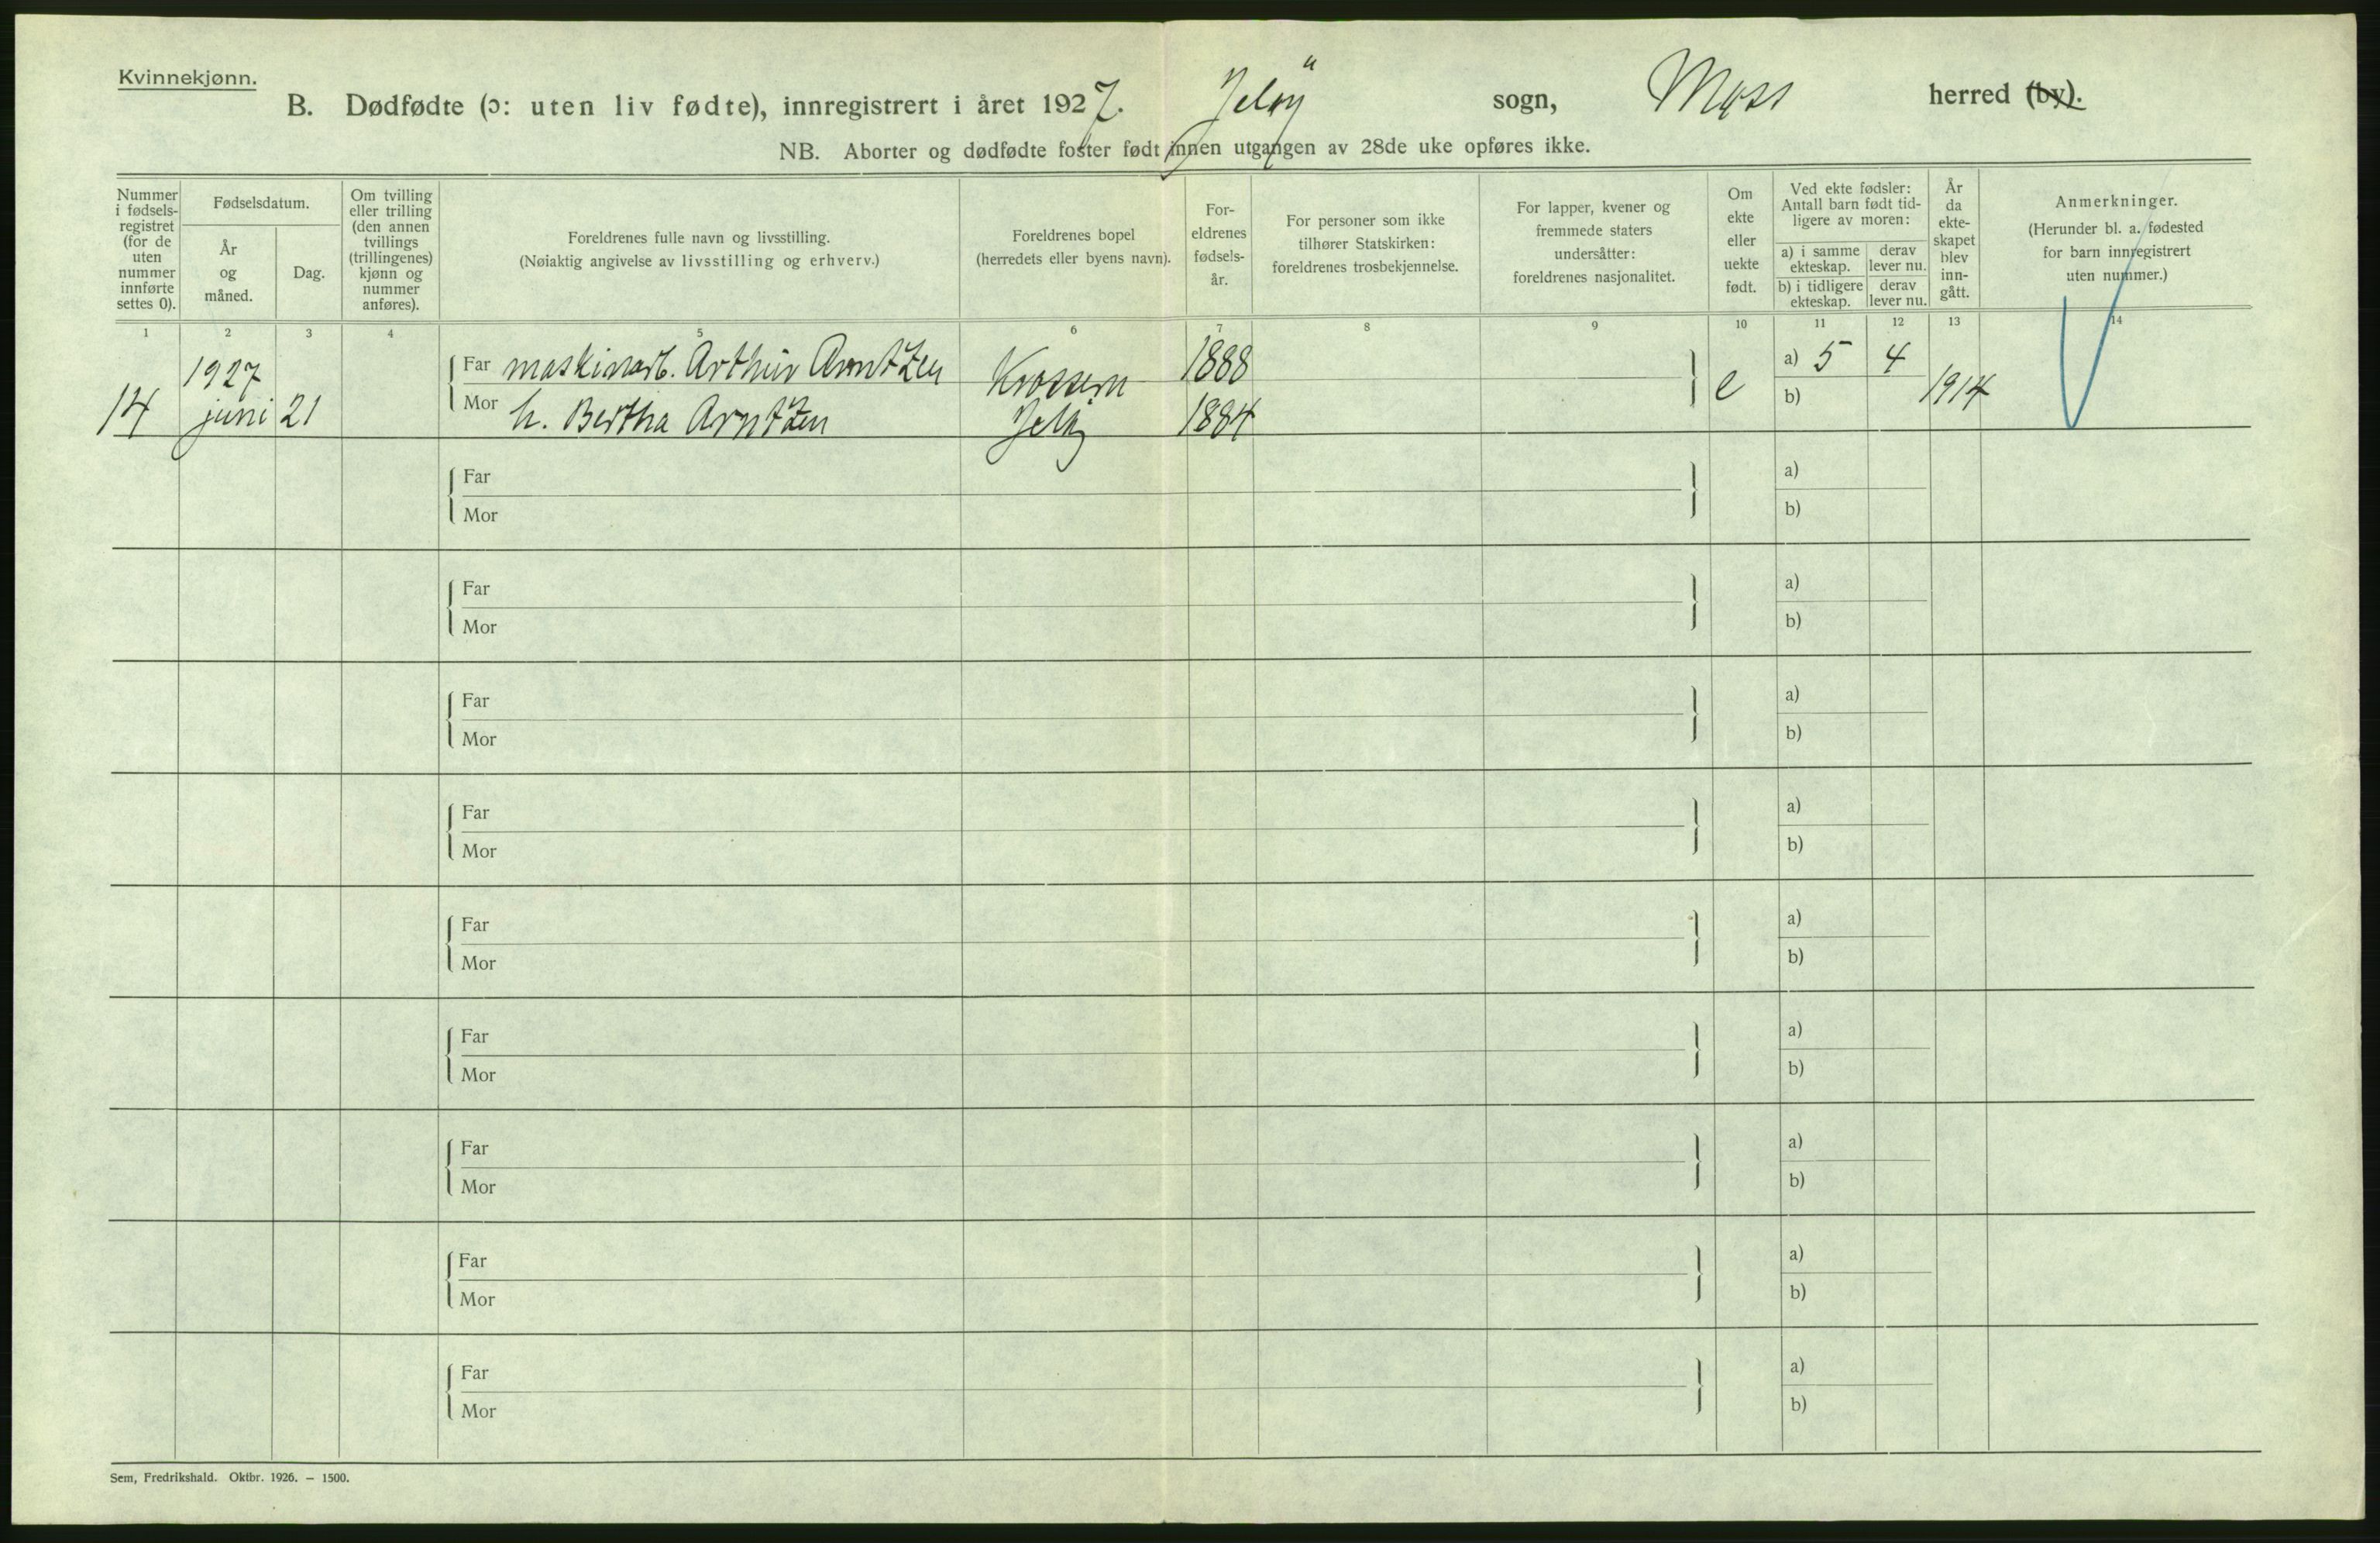 Kvinnekjønn.
B. Dødfødte (ɔ: uten liv fødte), innregistrert i året 1927. Jeløy sogn, Moss herred (by).
NB. Aborter og dødfødte foster født innen utgangen av 28de uke opføres ikke.
Nummer i fødsels-registret (for de uten nummer innførte settes 0).
Fødselsdatum.
År og måned.
Dag.
Om tvilling eller trilling (den annen tvillings (trillingenes) kjønn og nummer anføres).
Foreldrenes fulle navn og livsstilling.
(Nøiaktig angivelse av livsstilling og erhverv.)
Foreldrenes bopel
(herredets eller byens navn).
For-eldrenes fødsels-år.
For personer som ikke tilhører Statskirken: foreldrenes trosbekjennelse.
For lapper, kvener og fremmede staters undersåtter: foreldrenes nasjonalitet.
Om ekte eller uekte født.
Ved ekte fødsler: Antall barn født tid-ligere av moren:
a) i samme ekteskap.
derav lever nu.
b) i tidligere ekteskap.
derav lever nu.
År da ekte-skapet blev inn-gått.
Anmerkninger.
(Herunder bl. a. fødested for barn innregistrert uten nummer.)
1 2 3 4 5 6 7 8 9 10 11 12 13 14
1927 Far maskinarb. Arthur Arntzen 1888 a) 5 4
14 juni 21 Mor h. Bertha Arntzen Jeløy 1884 e b) 1914
Far a)
Mor b)
Far a)
Mor b)
Far a)
Mor b)
Far a)
Mor b)
Far a)
Mor b)
Far a)
Mor b)
Far a)
Mor b)
Far a)
Mor b)
Far a)
Mor b)
Sem, Fredrikshald. Oktbr. 1926. — 1500.